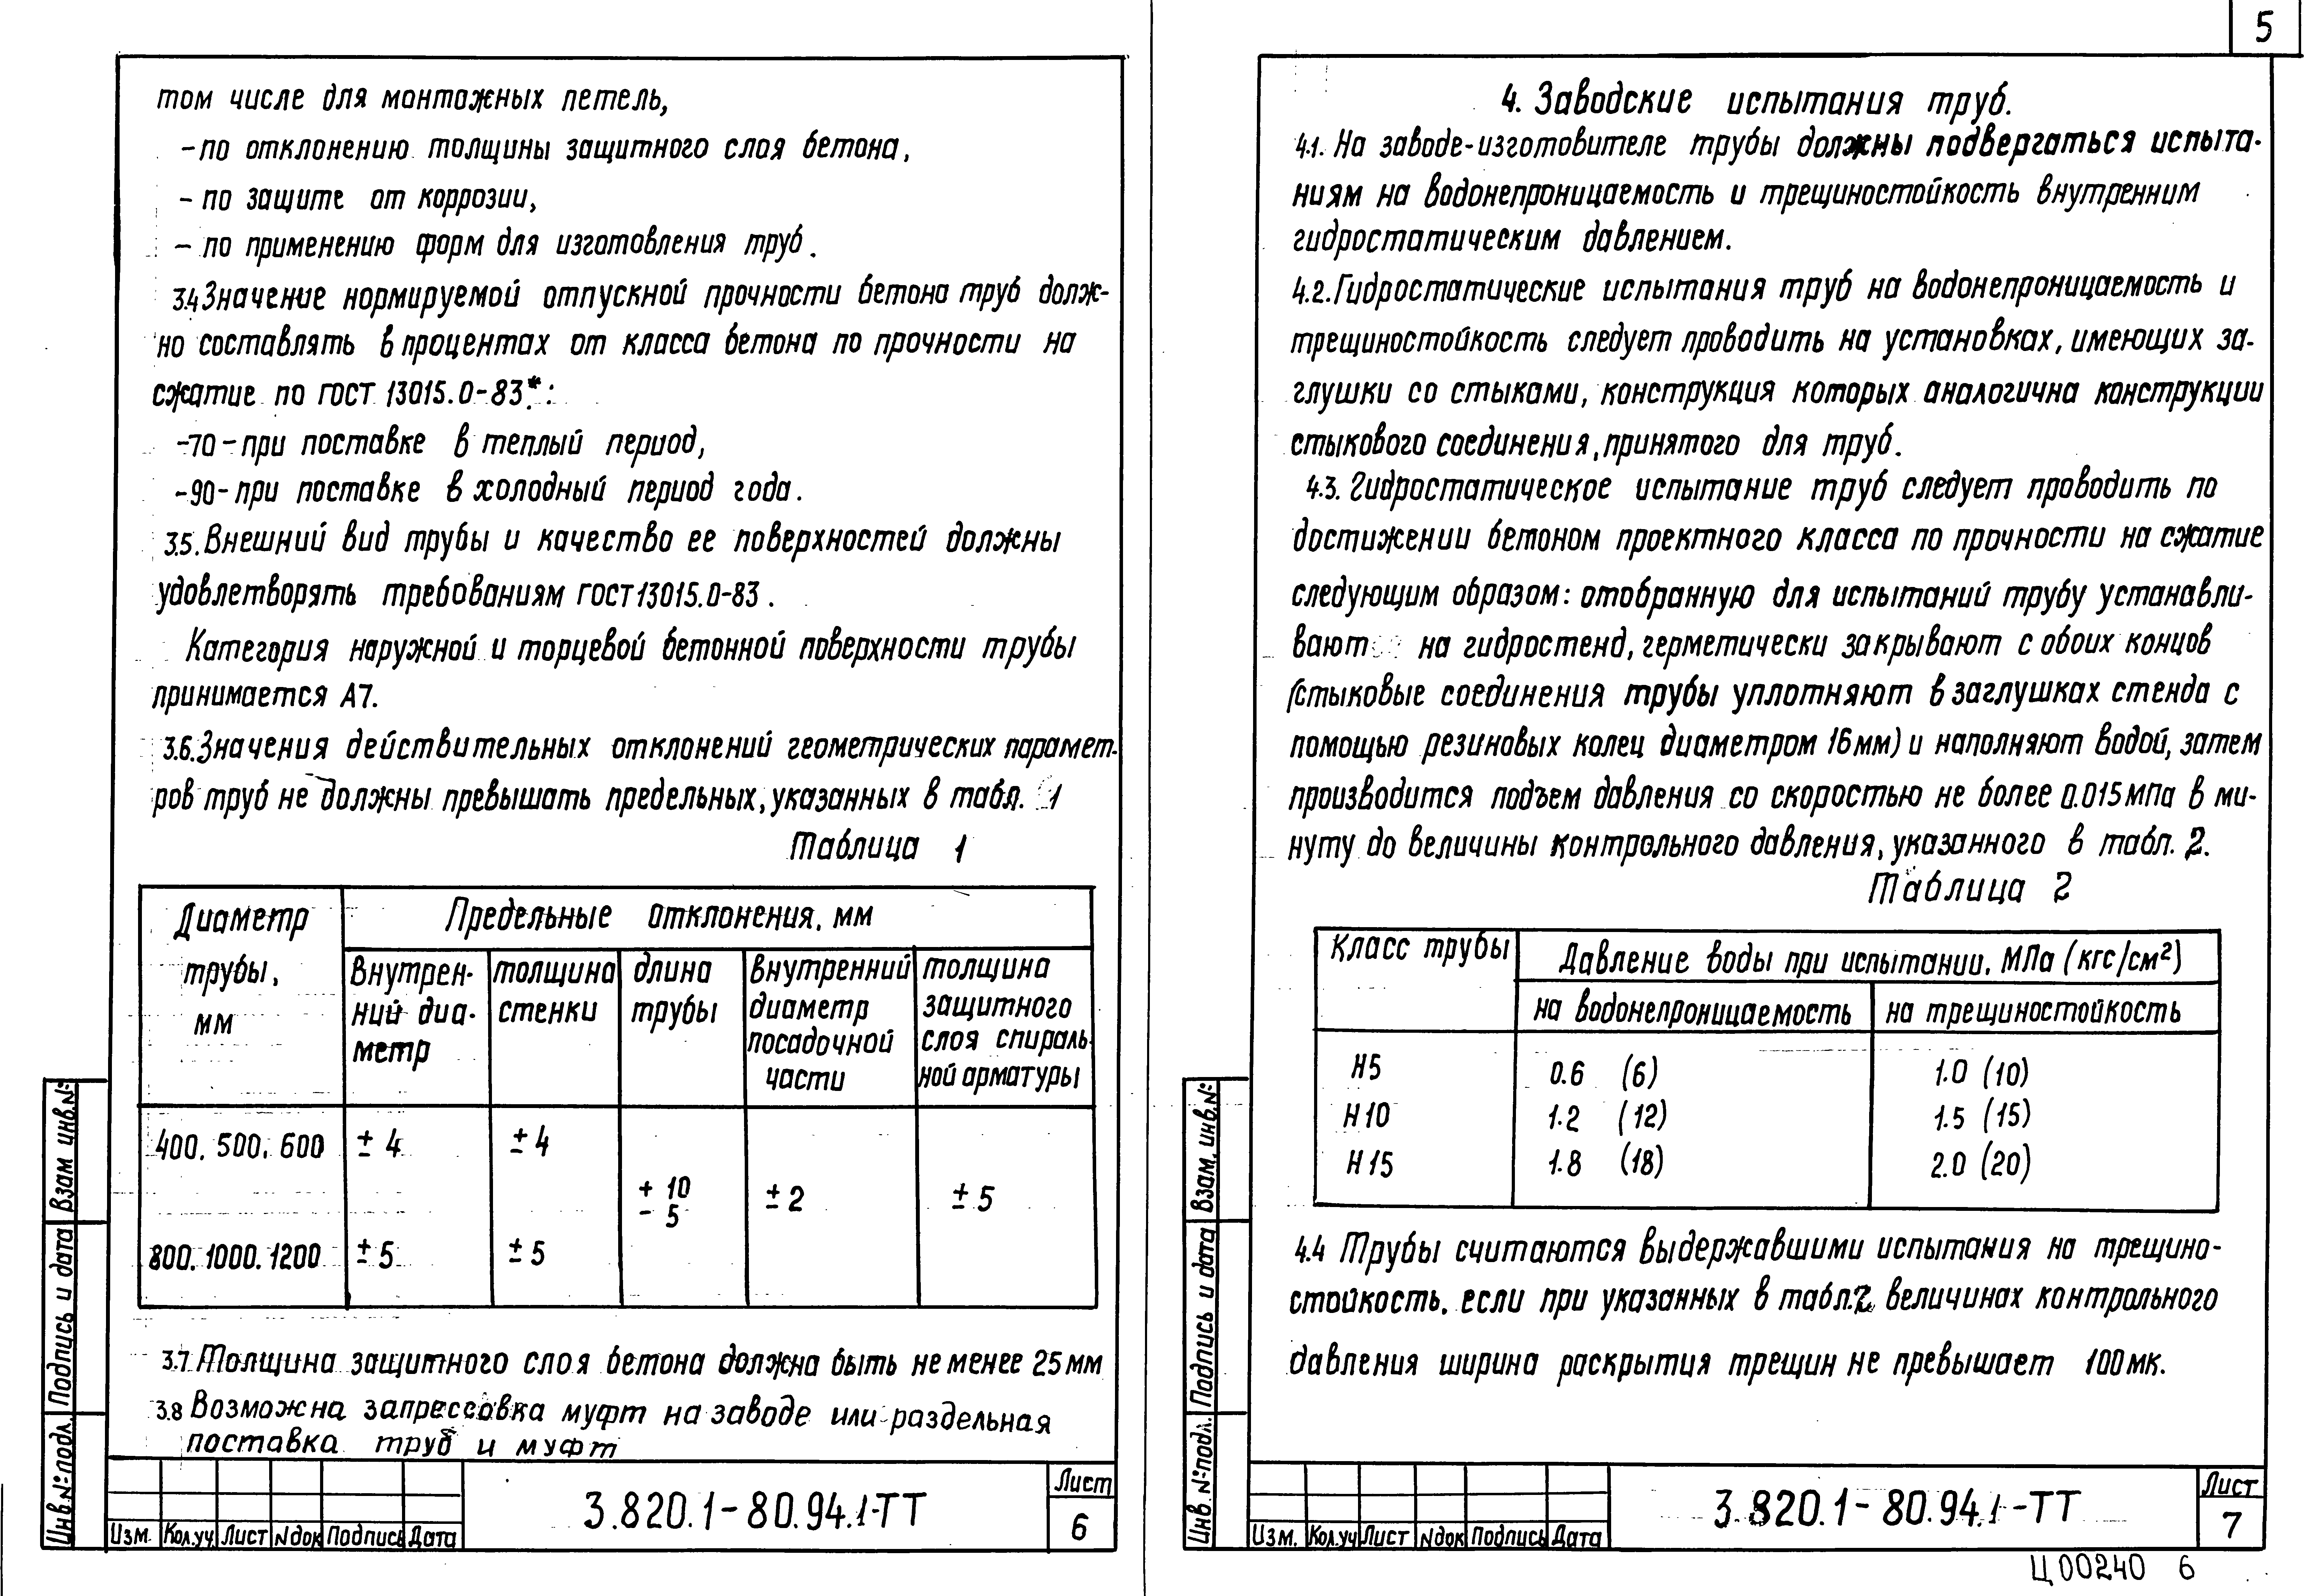 5
том числе для монтажных петель,
-по отклонению толщины защитного слоя бетона,
- по защите от коррозии,
- по применению форм для изготовления труб.
3.4 Значение нормируемой отпускной прочности бетона труб долж-
но составлять в процентах от класса бетона по прочности на
сжатие по ГОСТ 13015.0-83*:
-70-при поставке в теплый период,
-90-при поставке в холодный период года.
3.5. Внешний вид трубы и качество ее поверхностей должны
удовлетворять требованиям гост 13015.0-83.
Категория наружной и торцевой бетонной поверхности трубы
принимается А7.
3.6. Значения действительных отклонений геометрических парамет-
ров труб не должны превышать предельных, указанных в табл. 1
Таблица 1
Диаметр трубы, мм | Предельные отклонения, мм
Внутрен-ний диа-метр | толщина стенки | длина трубы | внутренний диаметр посадочной части | толщина защитного слоя спираль-ной арматуры
400. 500. 600 ± 4 ± 4
+ 10 - 5 ± 2 ± 5
800. 1000. 1200 ± 5 ± 5
3.7 Толщина защитного слоя бетона должна быть не менее 25 мм
3.8 Возможна запрессовка муфт на заводе или раздельная
поставка труб и муфт
Инв. № подл. Подпись и дата Взам инв. №
Изм. Кол.уч. Лист N док Подпись Дата
3.820.1-80.94.1-ТТ
Лист
6
4. Заводские испытания труб.
4.1. На заводе-изготовителе трубы должны подвергаться испыта-
ниям на водонепроницаемость и трещиностойкость внутренним
гидростатическим давлением.
4.2. Гидростатические испытания труб на водонепроницаемость и
трещиностойкость следует проводить на установках, имеющих за-
глушки со стыками, конструкция которых аналогична конструкции
стыкового соединения, принятого для труб.
4.3. Гидростатическое испытание труб следует проводить по
достижении бетоном проектного класса по прочности на сжатие
следующим образом: отобранную для испытаний трубу устанавли-
вают на гидростенд, герметически закрывают с обоих концов
(стыковые соединения трубы уплотняют в заглушках стенда с
помощью резиновых колец диаметром 16 мм) и наполняют водой, затем
производится подъем давления со скоростью не более 0.015 МПа в ми-
нуту до величины контрольного давления, указанного в табл. 2.
Таблица 2
Класс трубы | Давление воды при испытании. МПа (кгс/см²)
на водонепроницаемость | на трещиностойкость
Н5 0.6 (6) 1.0 (10)
Н10 1.2 (12) 1.5 (15)
Н15 1.8 (18) 2.0 (20)
4.4 Трубы считаются выдержавшими испытания на трещино-
стойкость, если при указанных в табл. 2 величинах контрольного
давления ширина раскрытия трещин не превышает 100 мк.
Инв. № подл. Подпись и дата Взам. инв. №
Изм. Кол.уч Лист N док Подпись Дата
3.820.1-80.94.1-ТТ
Лист
7
Ц00240 6